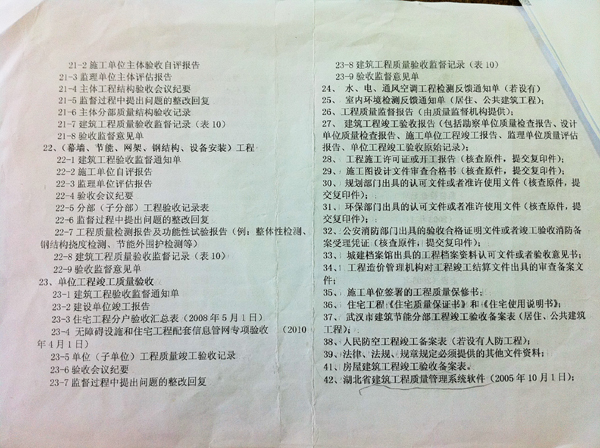 21-2 施工单位主体验收自评报告
21-3 监理单位主体评估报告
21-4 主体工程结构验收会议纪要
21-5 监督过程中提出问题的整改回复
21-6 主体分部质量结构验收记录
21-7 建筑工程质量验收监督记录（表 10）
21-8 验收监督意见单
22、（幕墙、节能、网架、钢结构、设备安装）工程
22-1 建筑工程验收监督通知单
22-2 施工单位自评报告
22-3 监理单位评估报告
22-4 验收会议纪要
22-5 分部（子分部）工程验收记录表
22-6 监督过程中提出问题的整改回复
22-7 工程质量检测报告及功能性试验报告（例：整体性检测、
钢结构挠度检测、节能外围护检测等）
22-8 建筑工程质量验收监督记录（表 10）
22-9 验收监督意见单
23、单位工程竣工质量验收
23-1 建筑工程验收监督通知单
23-2 建设单位竣工报告
23-3 住宅工程分户验收汇总表（2008 年 5 月 1 日）
23-4 无障碍设施和住宅工程配套信息管网专项验收 （2010
年 4 月 1 日）
23-5 单位（子单位）工程质量竣工验收记录
23-6 验收会议纪要
23-7 监督过程中提出问题的整改回复
23-8 建筑工程质量验收监督记录（表 10）
23-9 验收监督意见单
24、 水、电、通风空调工程检测反馈通知单（若设有）
25、 室内环境检测反馈通知单（居住、公共建筑工程）；
26、工程质量监督报告（由质量监督机构提供）；
27、建筑工程竣工验收报告（包括勘察单位质量检查报告、设计
单位质量检查报告、施工单位工程竣工报告、监理单位质量评估
报告、单位工程竣工验收原始记录）；
28、 工程施工许可证或开工报告（核查原件，提交复印件）；
29、 施工图设计文件审查合格书（核查原件，提交复印件）；
30、 规划部门出具的认可文件或者准许使用文件（核查原件，提
交复印件）；
31、 环保部门出具的认可文件或者准许使用文件（核查原件，提
交复印件）；
32、公安消防部门出具的验收合格证明文件或者竣工验收消防备
案受理凭证（核查原件，提交复印件）；
33、 城建档案馆出具的工程档案资料认可文件或者验收意见书；
34、 工程造价管理机构对工程竣工结算文件出具的审查备案文
件；
35、 施工单位签署的工程质量保修书；
36、 住宅工程《住宅质量保证书》和《住宅使用说明书》；
37、 武汉市建筑节能分部工程竣工验收备案表（居住、公共建筑
工程）；
38、人民防空工程竣工备案表（若设有人防工程）；
39、法律、法规、规章规定必须提供的其他文件资料；
41、房屋建筑工程竣工验收备案表。
42、湖北省建筑工程质量管理系统软件（2005 年 10 月 1 日）；